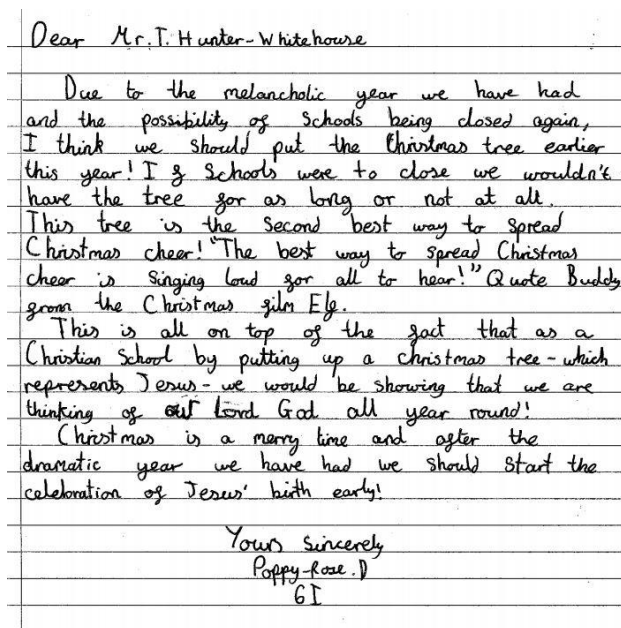 Dear Mr. T. Hunter-Whitehouse
Due to the melancholic year we have had
and the possibility of Schools being closed again,
I think we should put the Christmas tree earlier
this year! If Schools were to close we wouldn't
have the tree for as long or not at all.
This tree is the Second best way to spread
Christmas cheer! "The best way to spread Christmas
cheer is singing loud for all to hear!" Quote Buddy
from the Christmas film Elf.
This is all on top of the fact that as a
Christian School by putting up a christmas tree - which
represents Jesus - we would be showing that we are
thinking of our Lord God all year round!
Christmas is a merry time and after the
dramatic year we have had we should start the
celebration of Jesus' birth early!
Yours Sincerely
Poppy-Rose. D
6I